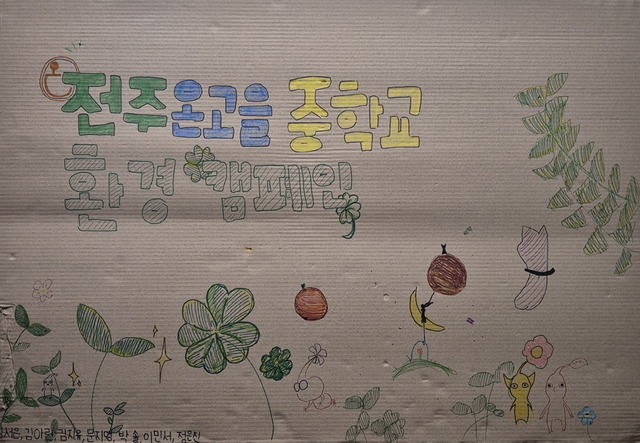 전주온고을 중학교
환경 캠페인
김아린, 김지유, 문지영, 박솔, 이민서, 정은찬